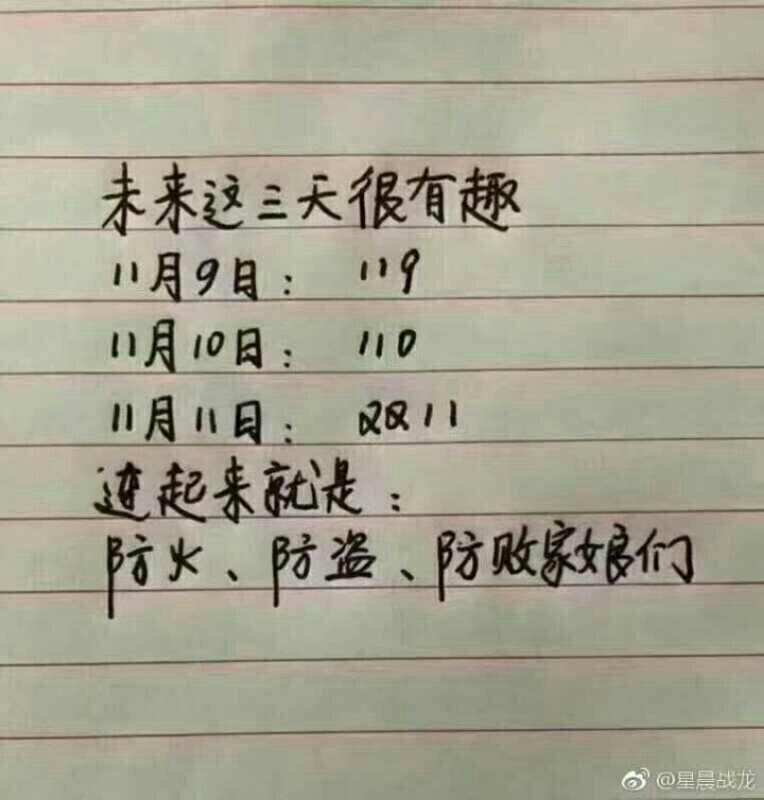 未来这三天很有趣
11月9日: 119
11月10日: 110
11月11日: 双11
连起来就是:
防火、防盗、防败家娘们
@星晨战龙